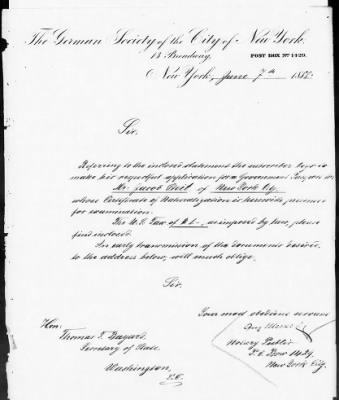 The German Society of the City of New York.
13 Broadway,
POST BOX Nº 1429.
New York, June 7th 188
Sir.
Referring to the inclosed statement the subscriber begs to
make his respectful application for a Government
Mr. Jacob of New York City
whose Certificate of Naturalization is herewith
for examination.
The U.S. Tax of $ as imposed by law, please
find inclosed.
An early transmission of the document desired
to the address below, will much oblige.
Sir.
Your most obedient servant
Notary Public
P.O. Box 1429.
New York City.
Hon:
Thomas F. Bayard.
Secretary of State.
Washington,
D.C.